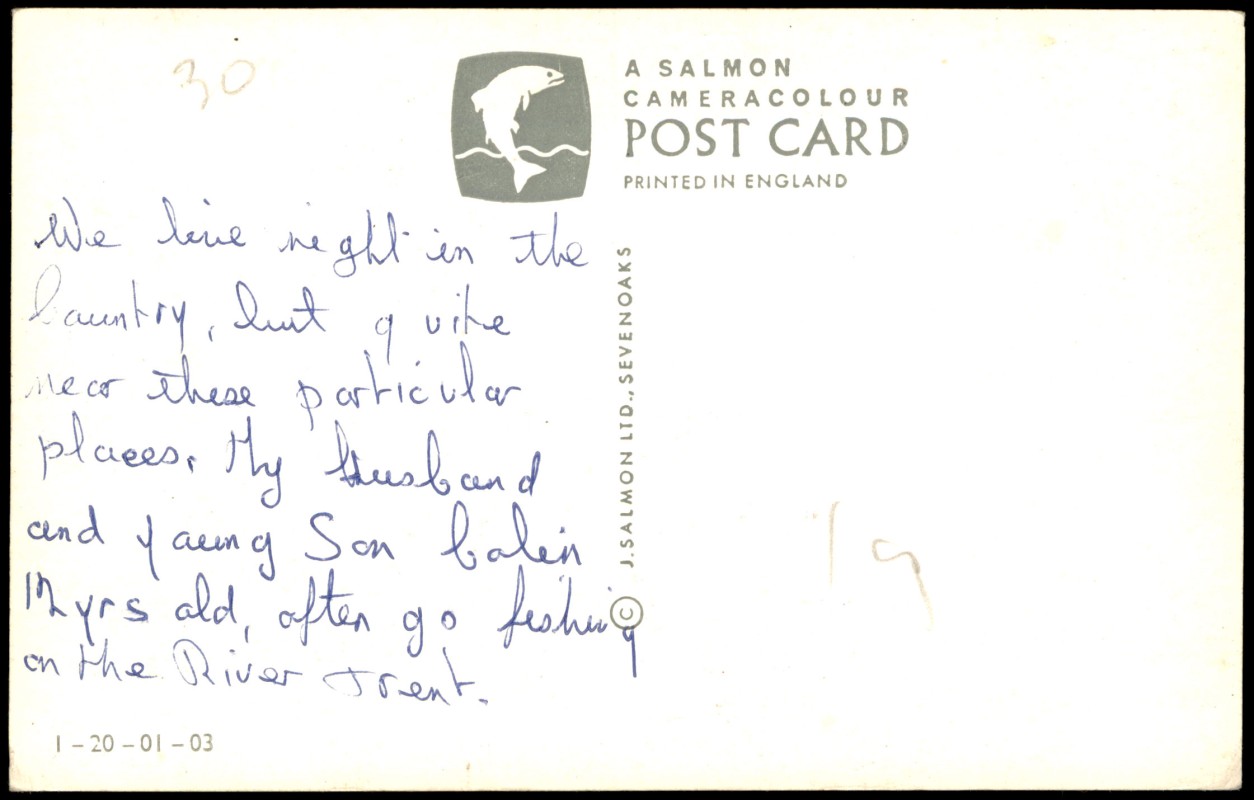 30
A SALMON
CAMERACOLOUR
POST CARD
PRINTED IN ENGLAND
We live right in the
Country, but quite
near these particular
places. My Husband
and young Son Colin
12 yrs old, often go fishing
on the River Trent.
© J. SALMON LTD., SEVENOAKS
19
1-20-01-03